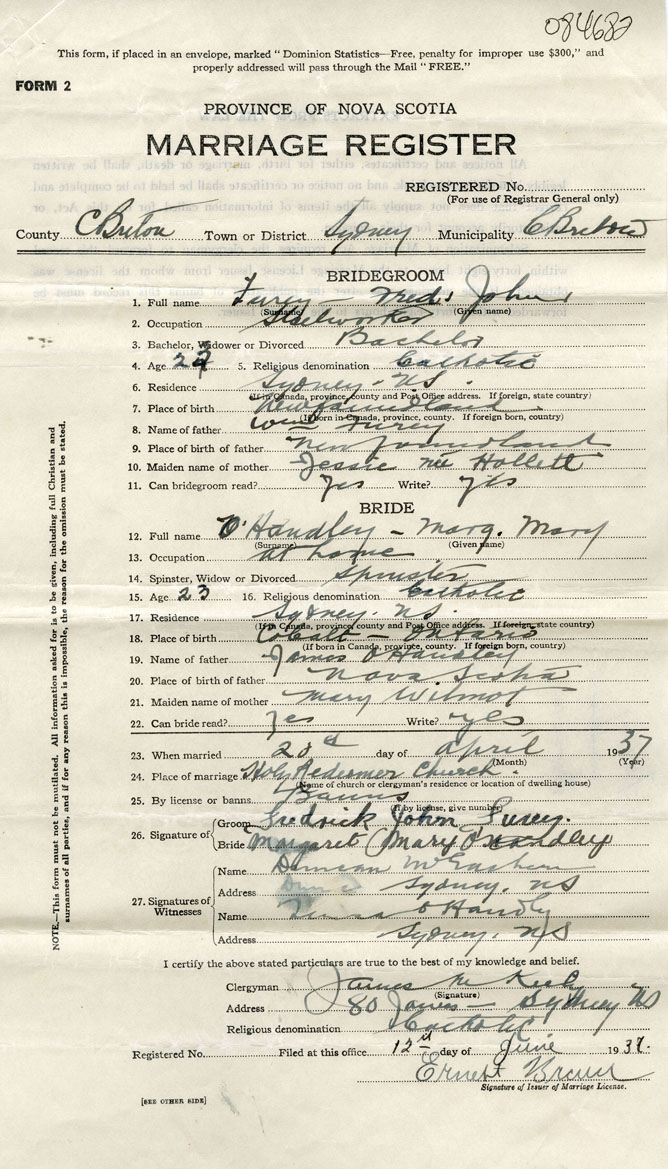 084682
This form, if placed in an envelope, marked "Dominion Statistics—Free, penalty for improper use $300," and
properly addressed will pass through the Mail "FREE."
FORM 2
PROVINCE OF NOVA SCOTIA
MARRIAGE REGISTER
REGISTERED No.
(For use of Registrar General only)
County C Breton Town or District Sydney Municipality C Breton
BRIDEGROOM
1. Full name Furey — Fred. John
(Surname) (Given name)
2. Occupation Steelworker
3. Bachelor, Widower or Divorced Bachelor
4. Age 5. Religious denomination Catholic
6. Residence Sydney - N.S.
(If in Canada, province, county and Post Office address. If foreign, state country)
7. Place of birth Newfoundland
(If born in Canada, province, county. If foreign born, country)
8. Name of father Wm Furey
9. Place of birth of father Newfoundland
10. Maiden name of mother Jessie née Hollett
11. Can bridegroom read? Yes Write? Yes
BRIDE
12. Full name O'Handley — Marg. Mary
(Surname) (Given name)
13. Occupation at home
14. Spinster, Widow or Divorced Spinster
15. Age 23 16. Religious denomination Catholic
17. Residence Sydney. N.S.
(If in Canada, province, county and Post Office address. If foreign, state country)
18. Place of birth Cobalt — Ontario
(If born in Canada, province, county. If foreign born, country)
19. Name of father James O'Handley
20. Place of birth of father Nova Scotia
21. Maiden name of mother Mary Wilmot
22. Can bride read? Yes Write? yes
23. When married day of April 1937
(Month) (Year)
24. Place of marriage Holy Redeemer Church.
(Name of church or clergyman's residence or location of dwelling house)
25. By license or banns Banns
(If by license, give number)
26. Signature of
Groom Fredrick John Furey.
Bride Margaret Mary O'Handley
27. Signatures of Witnesses
Name Duncan McEachern
Address Sydney, NS
Name O'Handly
Address Sydney, N/S
I certify the above stated particulars are true to the best of my knowledge and belief.
Clergyman James
(Signature)
Address 80 James — Sydney NS
Religious denomination Catholic
Registered No. Filed at this office 12th day of June 1937.
Ernest
Signature of Issuer of Marriage License.
[SEE OTHER SIDE]
NOTE.—This form must not be mutilated. All information asked for is to be given, including full Christian and
surnames of all parties, and if for any reason this is impossible, the reason for the omission must be stated.